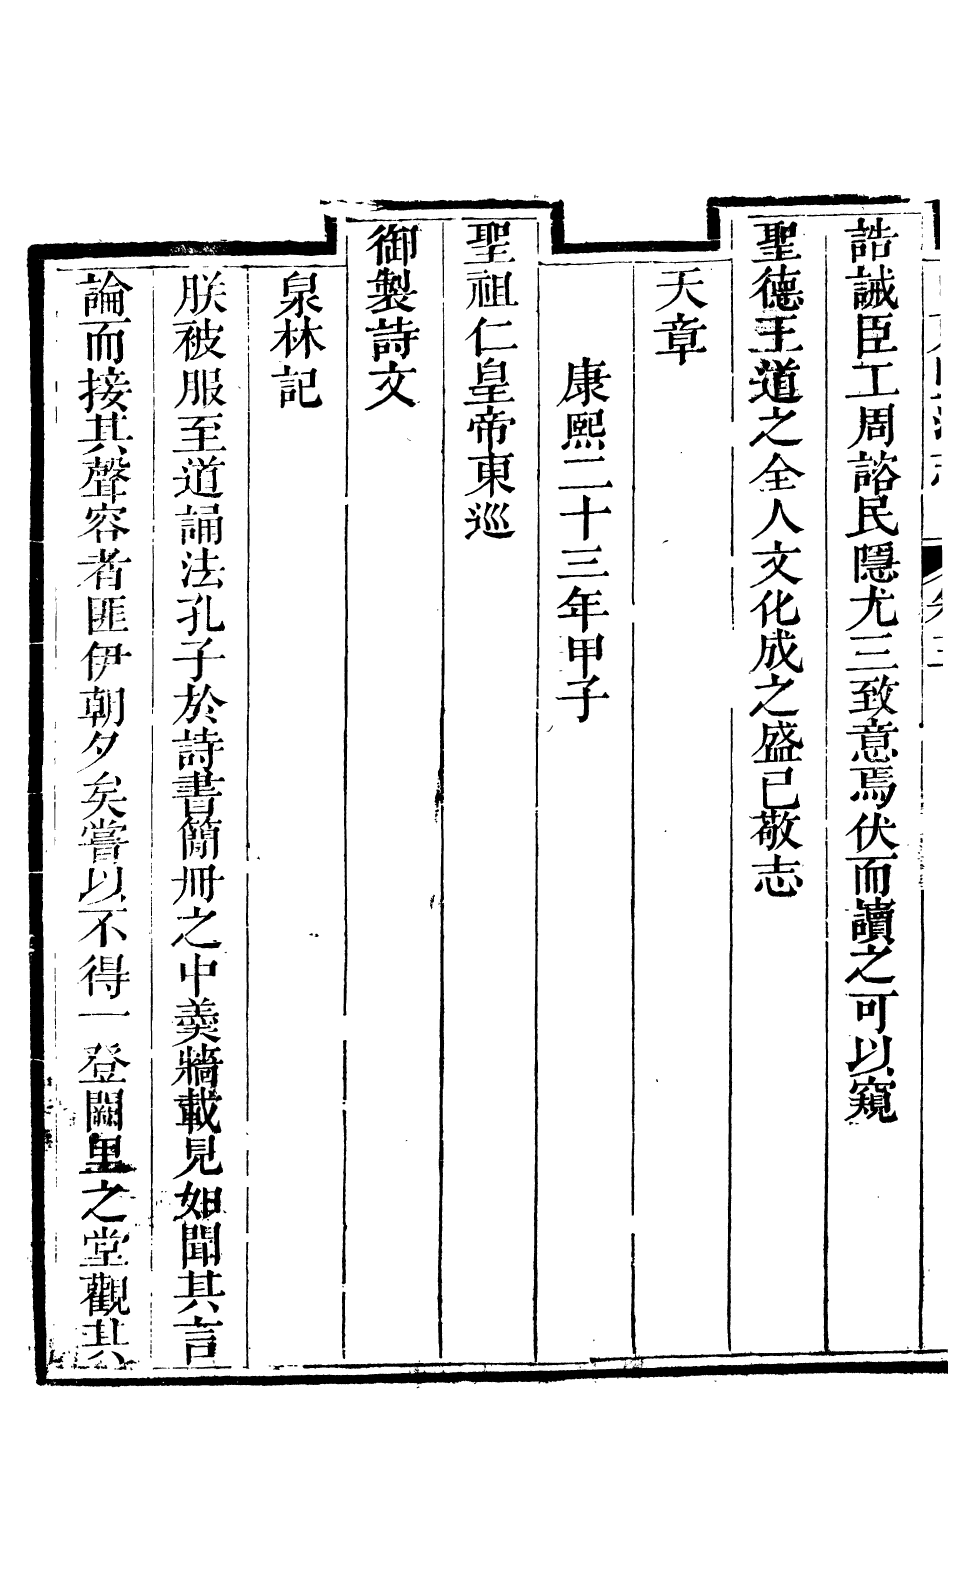 誥誡臣工周諮民隱尤三致意焉伏而讀之可以窺
聖德王道之全人文化成之盛已敬志
天章
康熙二十三年甲子
聖祖仁皇帝東巡
御製詩文
泉林記
朕被服至道誦法孔子於詩書簡冊之中羹牆載見如聞其言
論而接其聲容者匪伊朝夕矣嘗以不得一登闕里之堂觀其